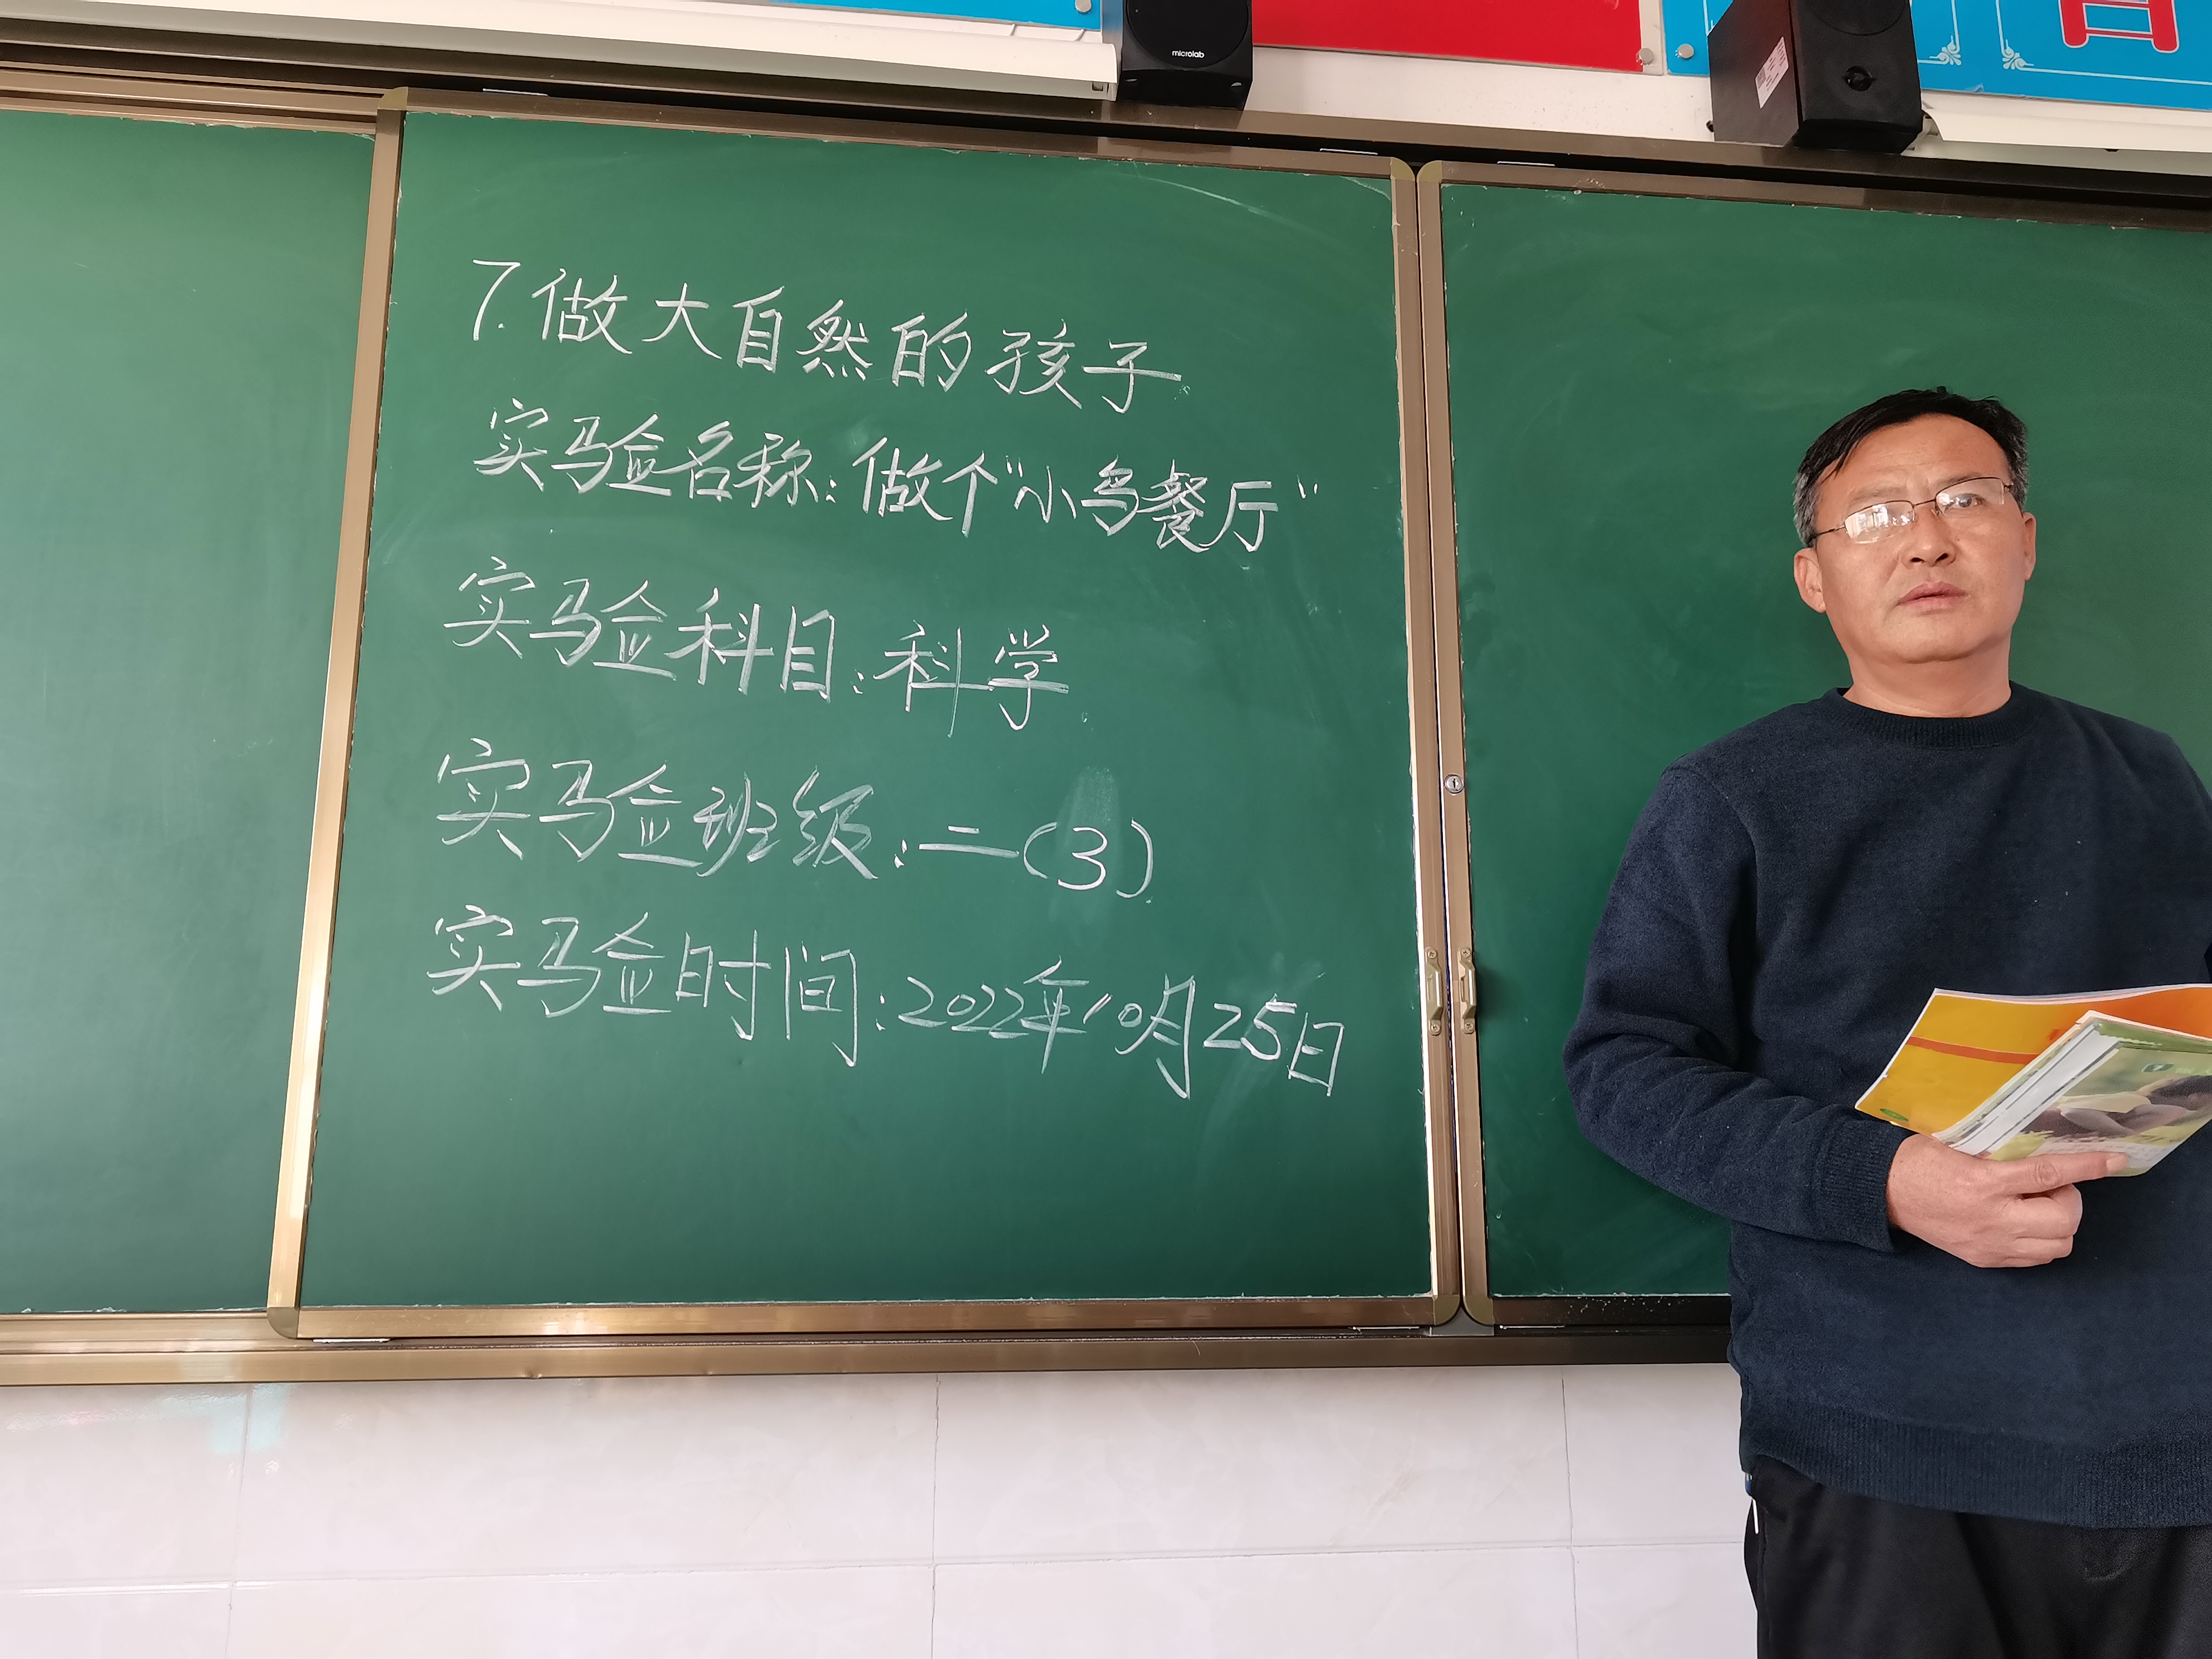 microlab
7.做大自然的孩子
实验名称:做个“小鸟餐厅”
实验科目:科学
实验班级:二(3)
实验时间:2022年10月25日